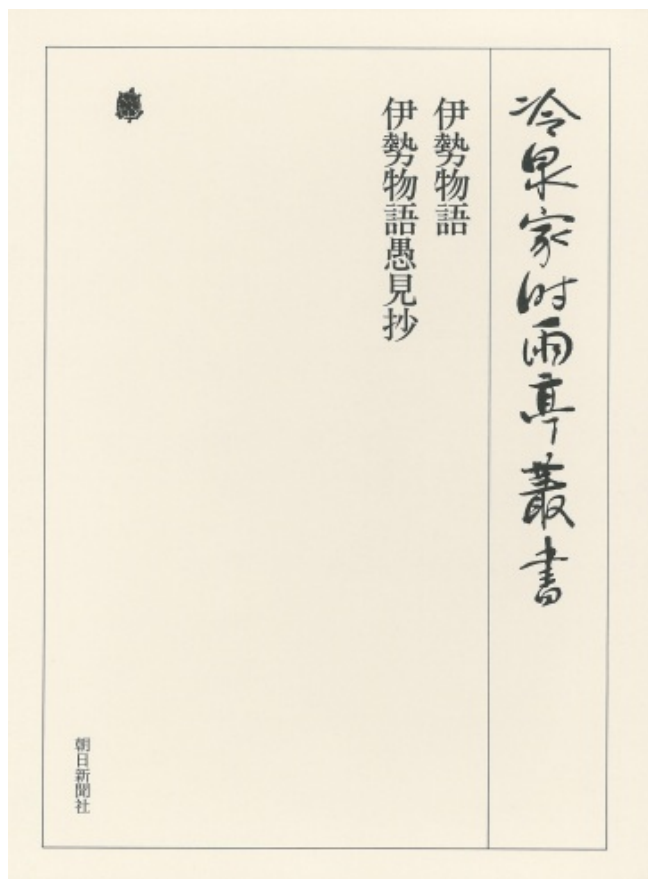 冷泉家時雨亭叢書
伊勢物語
伊勢物語愚見抄
朝日新聞社